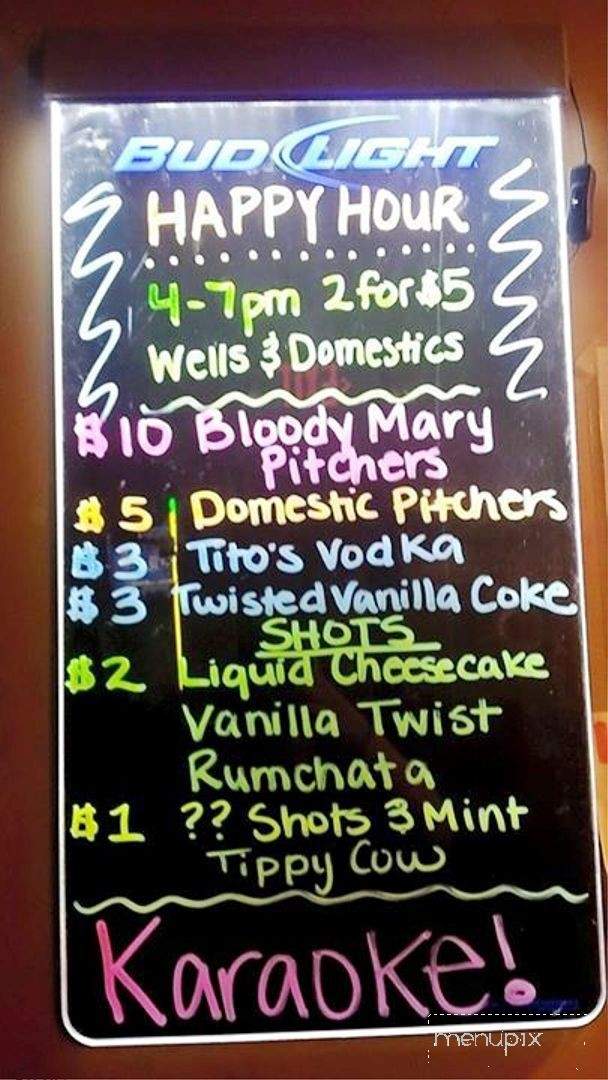 BUD LIGHT
HAPPY HOUR
4-7pm 2 for $5
Wells & Domestics
$10 Bloody Mary
Pitchers
$5 Domestic Pitchers
$3 Tito's Vodka
$3 Twisted Vanilla Coke
SHOTS
$2 Liquid Cheesecake
Vanilla Twist
Rumchata
$1 ?? Shots & Mint
Tippy Cow
Karaoke!
menupix